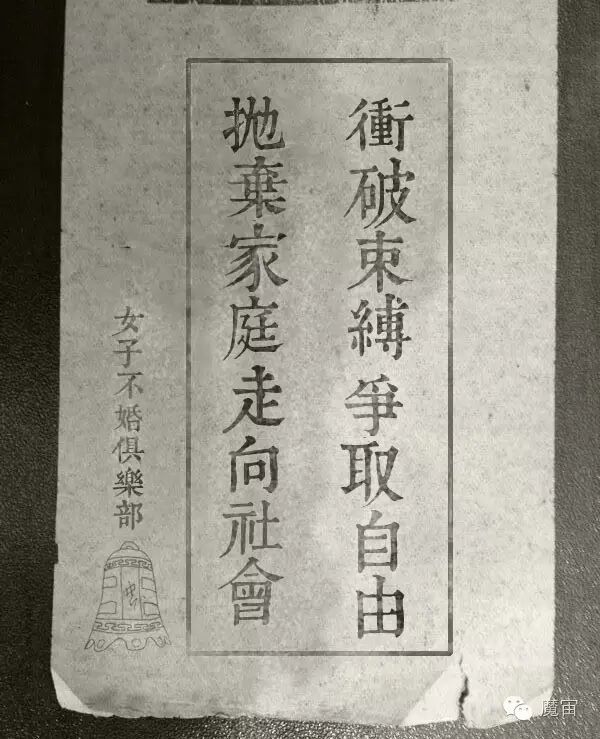 衝破束縛爭取自由
拋棄家庭走向社會
女子不婚俱樂部
魔宙